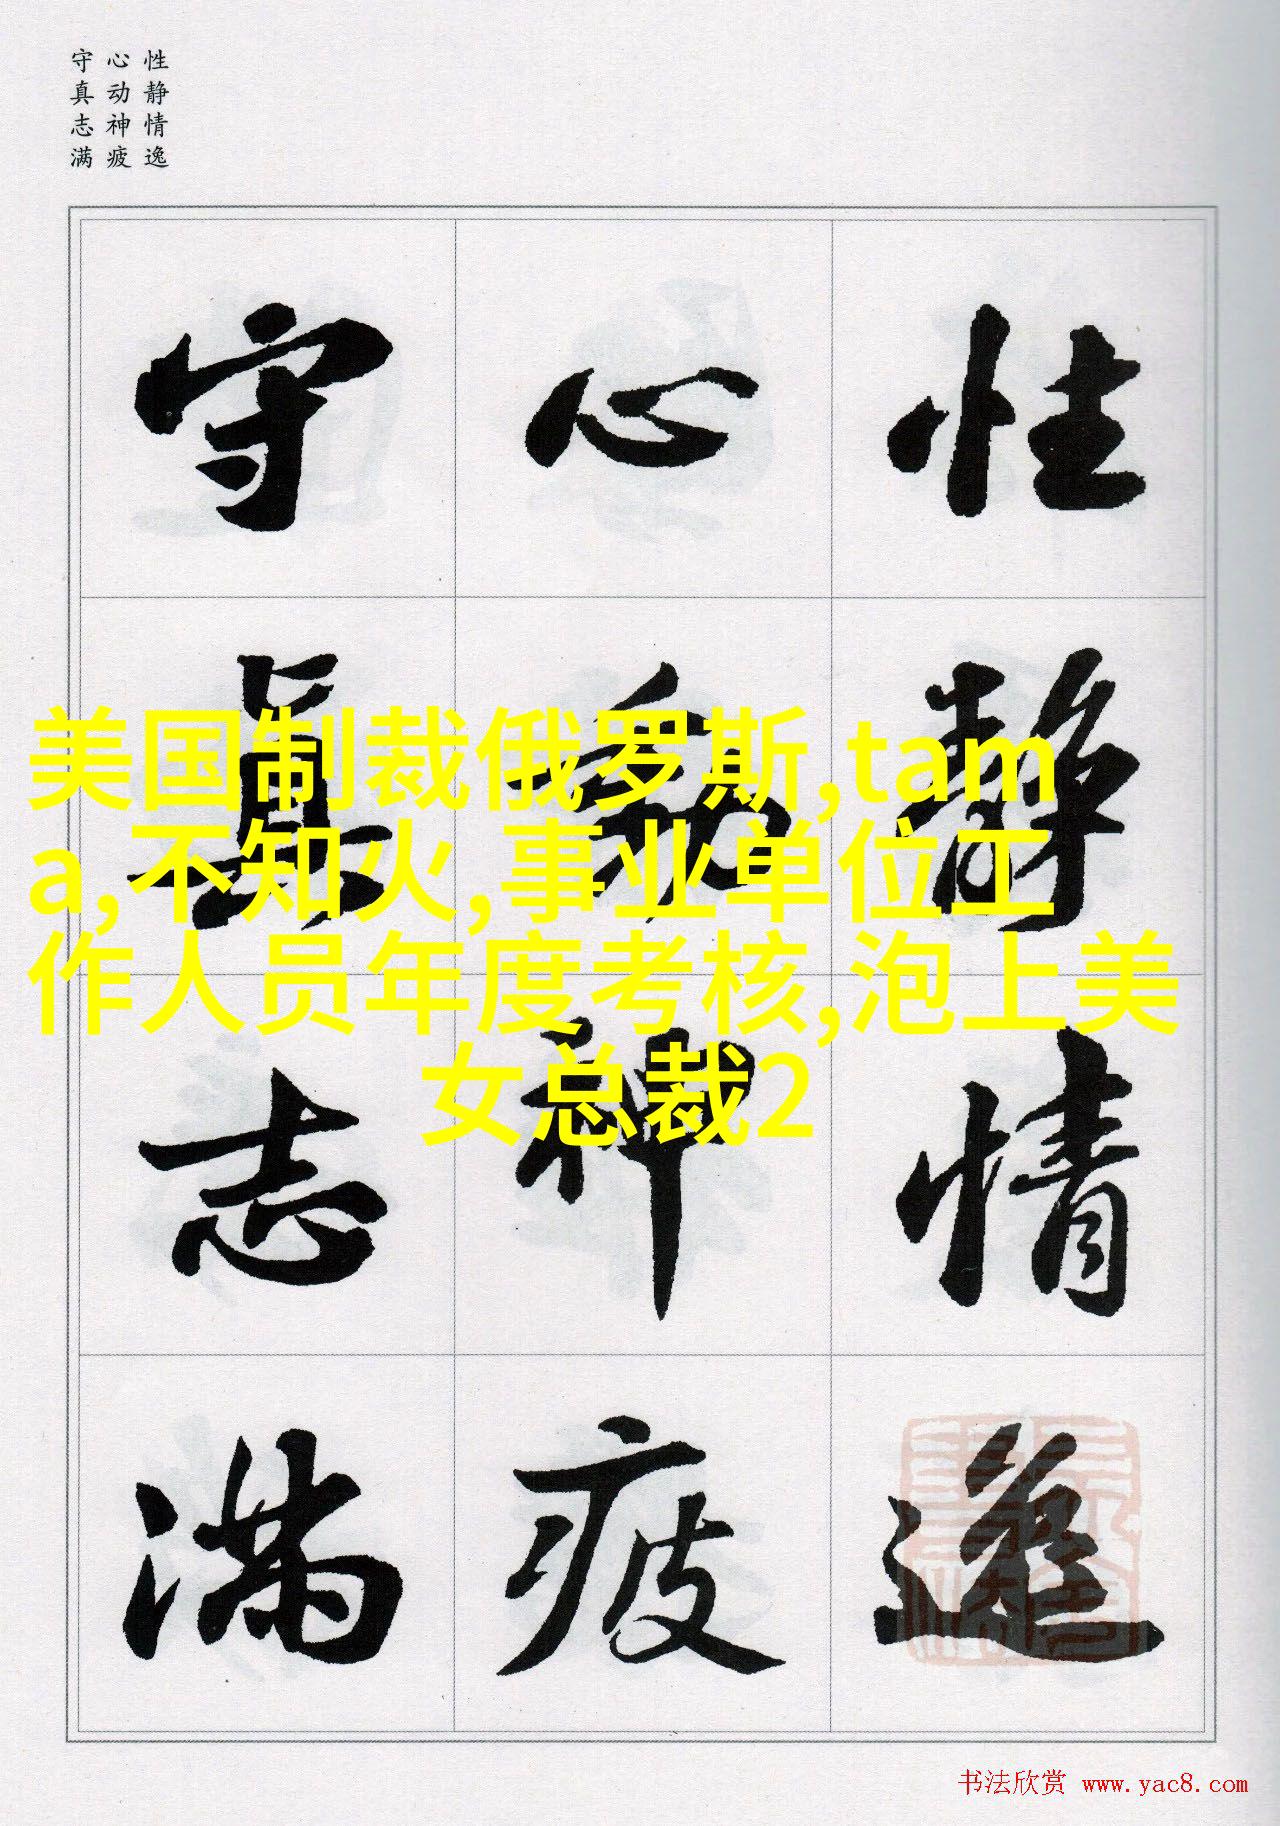 性静情逸
心动神疲
守真志满
性静情逸
心動神疲
守眞志满
美国制裁俄罗斯,tam
a,不知火,事业单位工
作人员年度考核,泡上美
女总裁2
书法欣赏 www.yac8.com